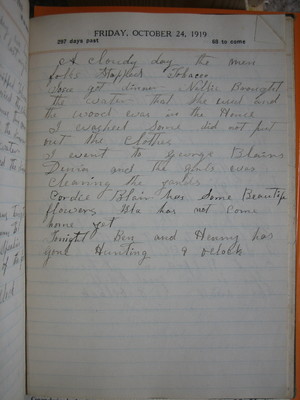 FRIDAY, OCTOBER 24, 1919
297 days past 68 to come
A cloudy day the men
folks Stripped Tobacco
Sue got dinner Nellie Brought
the water that she used and
the wood was in the House
I washed Some did not put
out the Clothes
I went to George Blairs
and the girls was
Cleaning the yards
Cordie Blair has Some Beautiful
flowers has not Come
home yet
Tonight Ben and Henry has
gone Hunting 9 oclock